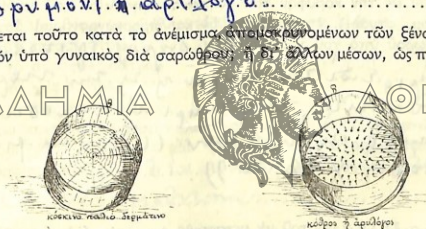 ρν.μ.ον.ι. ή. αρι.λογο.
εται τοῦτο κατὰ τὸ ἀνέμισμα, ἀπομακρυνομένων τῶν ξένο
όν ὑπὸ γυναικὸς διὰ σαρώθρου; ἢ δι' ἄλλων μέσων, ὡς π
ΔΗΜΙΑ ΑΘΗ
κόσκινο παλιό δερμάτινο
κόθρος ἢ ἀριλόγος